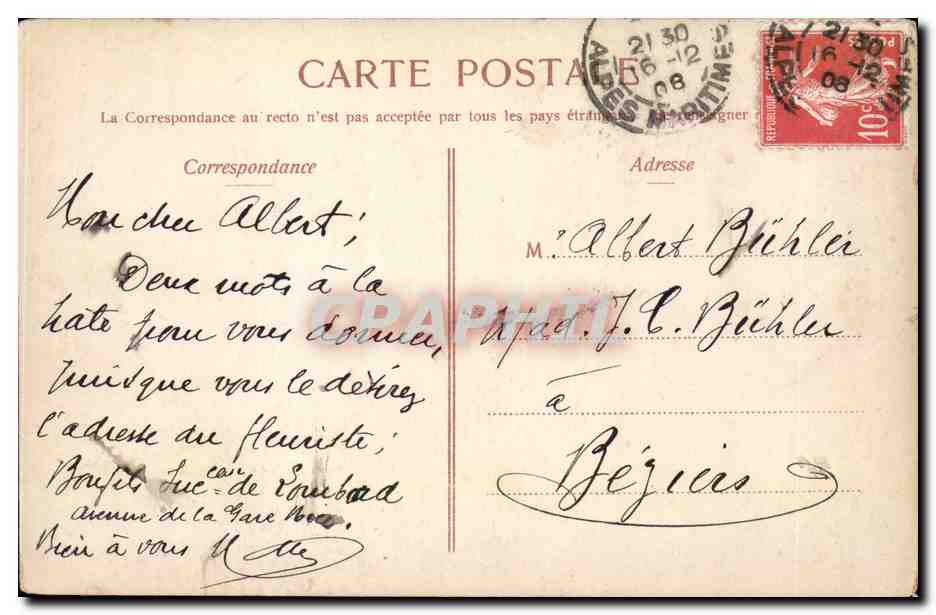 CARTE POSTALE
La Correspondance au recto n'est pas acceptée par tous les pays étrangers renseigner
Correspondance
Adresse
21 30
16 -12
08
ALPES MARITIMES
21 30
16 -12
08
REPUBLIQUE FRANÇAISE
POSTES
10c
Mon cher Albert;
Deux mots à la
hâte pour vous donner,
puisque vous le désirez
l'adresse du fleuriste;
Bonfils Succeur de Lombard
avenue de la Gare Nice.
Bien à vous
M. Albert Bühler
Mad. J. C. Bühler
à
Béziers
CPAPHIL